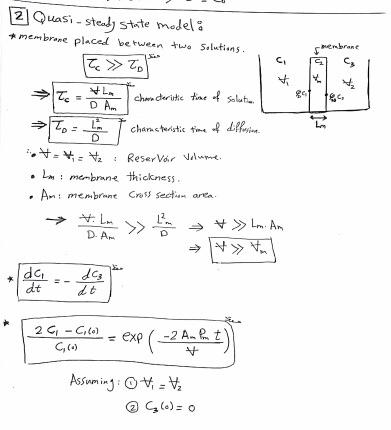 2 Quasi-steady state model:
* membrane placed between two solutions.
τc >> τD
membrane
C1 C2 C3
V1 Vm V2
Lm
⇒ τc = V Lm / D Am characteristic time of solution
⇒ τD = Lm² / D characteristic time of diffusion
∴ • V = V1 = V2 : Reservoir Volume.
• Lm : membrane thickness.
• Am : membrane cross section area.
→ V. Lm / D. Am >> Lm² / D ⇒ V >> Lm. Am
⇒ V >> Vm
* dC1/dt = - dC3/dt
* 2 C1 - C1(0) / C1(0) = exp ( -2 Am Pm t / V )
Assuming : ① V1 = V2
② C3(0) = 0